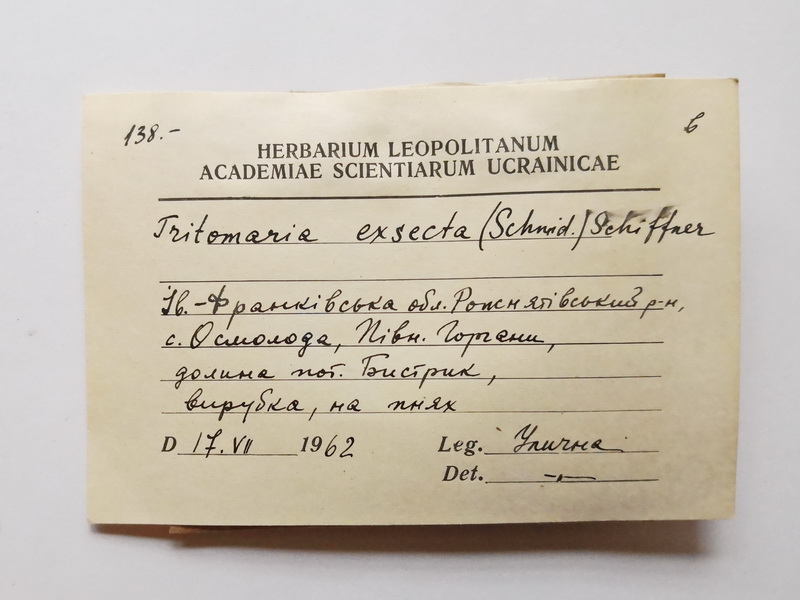 138.-
б
HERBARIUM LEOPOLITANUM
ACADEMIAE SCIENTIARUM UCRAINICAE
Tritomaria exsecta (Schmid.) Schiffner
Ів.-Франківська обл. Рожнятівський р-н,
с. Осмолода, Півн. Горгани,
долина пот. Бистрик,
вирубка, на пнях
D 17.VII 1962 Leg. Улична
Det. -"-